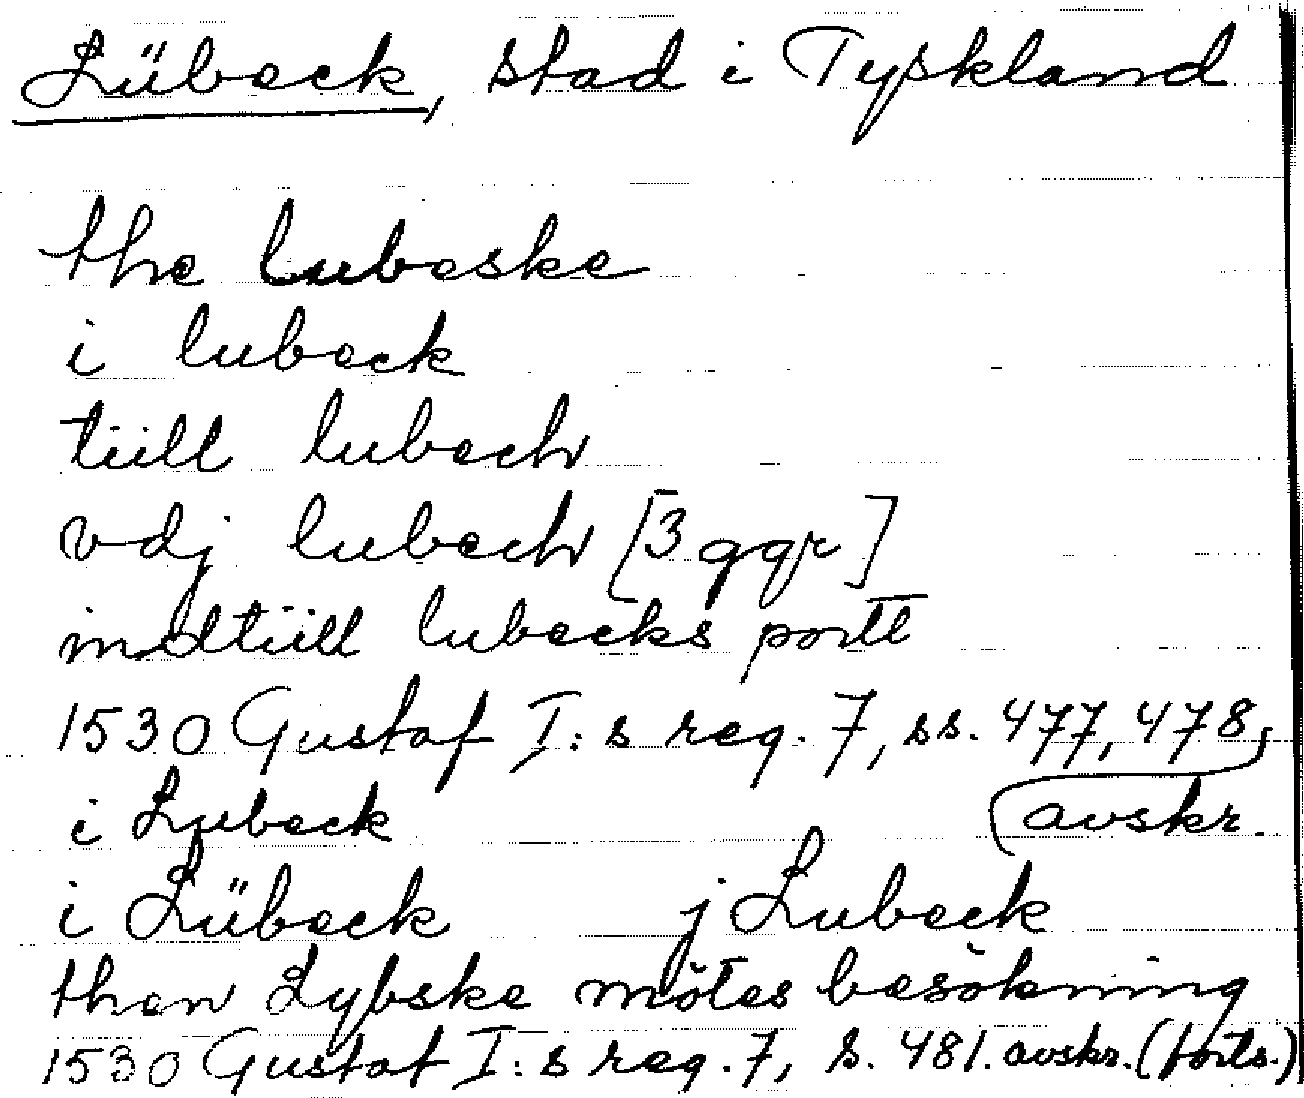 Lübeck, stad i Tyskland
the lubeske
i lubeck
tiill lubech
vdj lubech [3 ggr]
indtiill lubecks portt
1530 Gustaf I:s reg. 7, ss. 477, 478,
avskr.
i Lubeck
i Lübeck j Lubeck
then Lybske mötes besökning
1530 Gustaf I:s reg. 7, s. 481. avskr. (forts.)